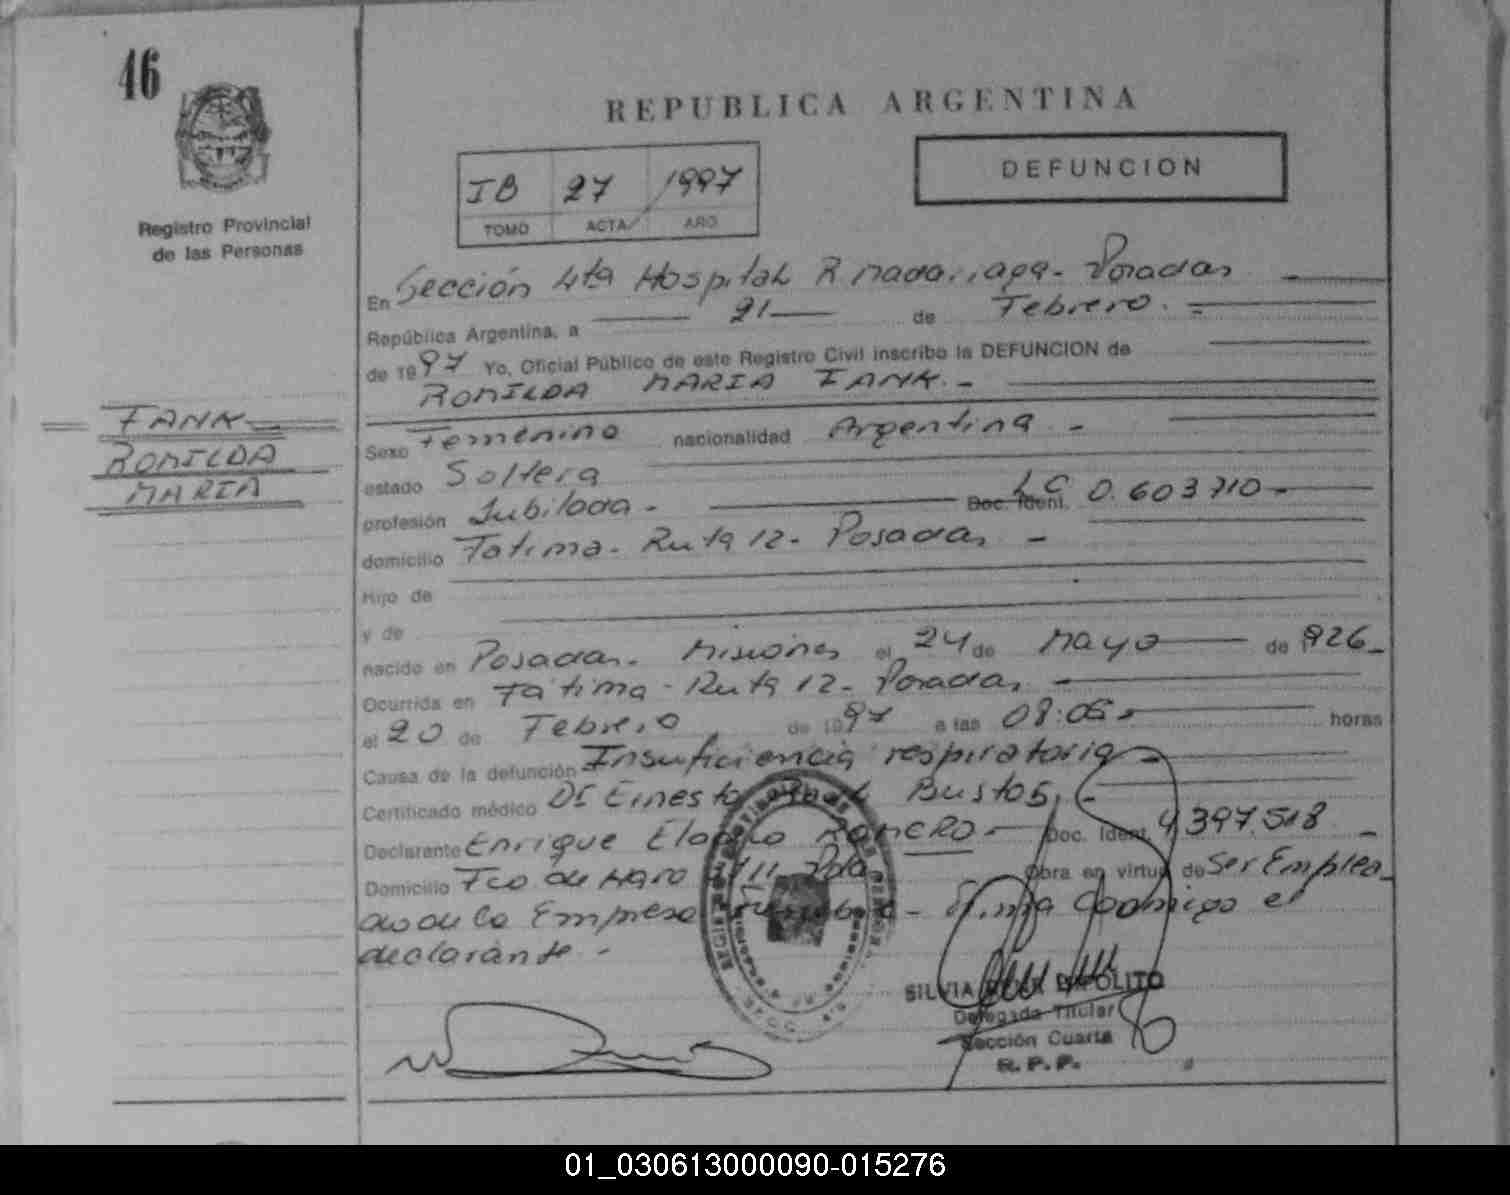 46
REPUBLICA ARGENTINA
DEFUNCION
IB 27 1997
TOMO ACTA AÑO
Registro Provincial
de las Personas
FANK
ROMILDA
MARIA
En Sección 4ta Hospital R Madariaga - Posadas
República Argentina, a 21 de Febrero.
de 1997 Yo, Oficial Público de este Registro Civil inscribo la DEFUNCION de
ROMILDA MARIA FANK. -
Sexo Femenino nacionalidad Argentina -
estado Soltera
profesión Jubilada - Doc. Ident. LC 0.603710 -
domicilio Fatima - Ruta 12 - Posadas -
Hijo de
y de
nacido en Posadas. Misiones el 24 de Mayo de 1926 -
Ocurrida en Fátima - Ruta 12 - Posadas -
el 20 de Febrero de 1997 a las 08:05 - horas
Causa de la defunción Insuficiencia respiratoria -
Certificado médico Dr Ernesto Bustos -
Declarante Enrique ROMERO - Doc. Ident. 4397.518 -
Domicilio Fco de Haro Pdas Obra en virtud de Ser Emplea
do de la Empresa Funebre - Firma Conmigo el
declarante -
SILVIA IPOLITO
Delegada Titular
Sección Cuarta
R. P. P.
01_030613000090-015276